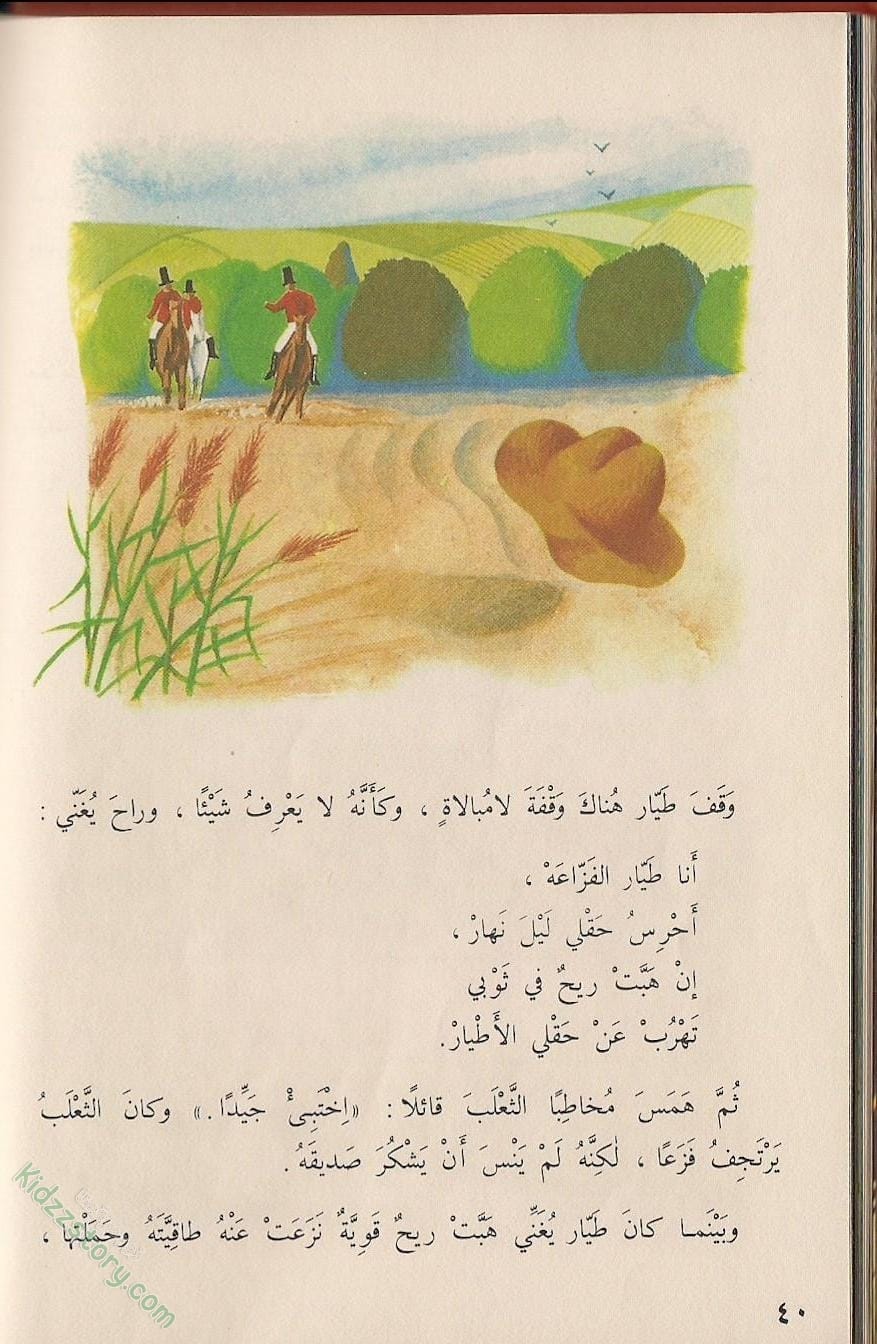 وَقَفَ طَيّار هُناكَ وَقْفَةَ لامُبالاةٍ ، وكَأَنَّهُ لا يَعْرِفُ شَيْئًا ، وراحَ يُغَنّي :
أَنا طَيّار الفَزّاعَهْ ،
أَحْرِسُ حَقْلي لَيْلَ نَهارْ ،
إنْ هَبَّتْ ريحٌ في ثَوْبي
تَهْرُبْ عَنْ حَقْلي الأَطْيارْ.
ثُمَّ هَمَسَ مُخاطِبًا الثَّعْلَبَ قائلًا : «اِخْتَبِئْ جَيِّدًا.» وكانَ الثَّعْلَبُ
يَرْتَجِفُ فَزَعًا ، لٰكِنَّهُ لَمْ يَنْسَ أَنْ يَشْكُرَ صَديقَهُ.
وبَيْنَما كانَ طَيّار يُغَنِّي هَبَّتْ ريحٌ قَوِيَّةٌ نَزَعَتْ عَنْهُ طاقِيَّتَهُ وحَمَلَتْها ،
Kidzzstory.com
٤٠